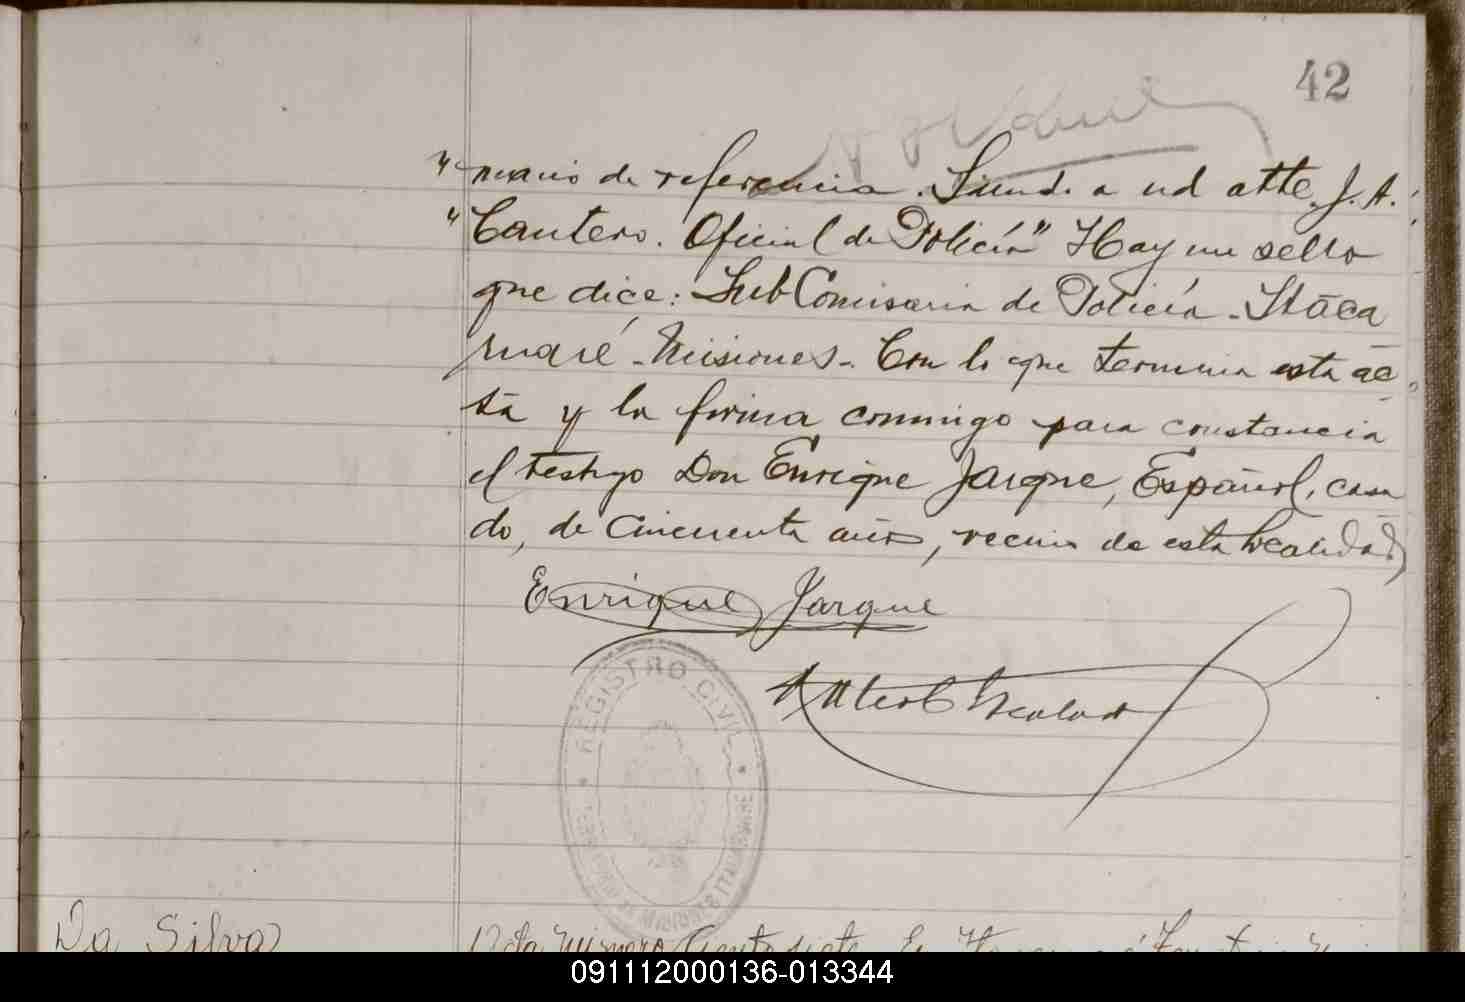 42
" mario de referencia. Saludo a ud atte. J. A.
" Cantero. Oficial de Policía" Hay un sello
que dice: Sub Comisaria de Policía - Itaca
ruaré - Misiones - Con lo que termina esta ac
ta y la firma conmigo para constancia
el testigo Don Enrique Jarque, Español, casa
do, de cincuenta años, vecino de esta localidad,
Enrique Jarque
REGISTRO CIVIL
Da Silva
Acta número Ciento siete. En
091112000136-013344